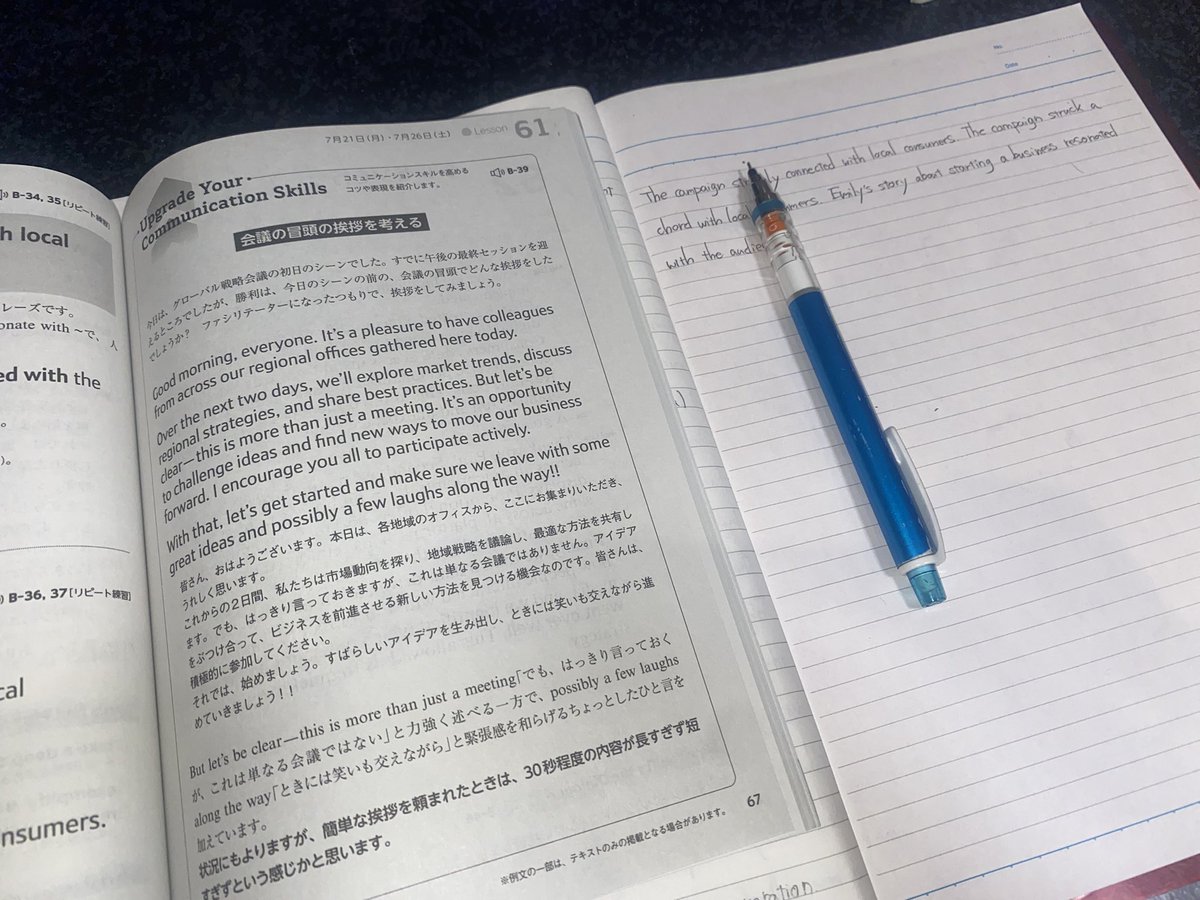 B-34, 35 [リピート練習]
h local
レーズです。
onate with ~で、人
ed with the
B-36, 37 [リピート練習]
cal
onsumers.
7月21日(月)・7月26日(土) Lesson 61
Upgrade Your
Communication Skills
コミュニケーションスキルを高める
コツや表現を紹介します。
B-39
会議の冒頭の挨拶を考える
今日は、グローバル戦略会議の初日のシーンでした。すでに午後の最終セッションを迎
えるところでしたが、勝利は、今日のシーンの前の、会議の冒頭でどんな挨拶をした
でしょうか? ファシリテーターになったつもりで、挨拶をしてみましょう。
Good morning, everyone. It's a pleasure to have colleagues
from across our regional offices gathered here today.
Over the next two days, we'll explore market trends, discuss
regional strategies, and share best practices. But let's be
clear—this is more than just a meeting. It's an opportunity
to challenge ideas and find new ways to move our business
forward. I encourage you all to participate actively.
With that, let's get started and make sure we leave with some
great ideas and possibly a few laughs along the way!!
皆さん、おはようございます。本日は、各地域のオフィスから、ここにお集まりいただき、
うれしく思います。
これからの2日間、私たちは市場動向を探り、地域戦略を議論し、最適な方法を共有し
ます。でも、はっきり言っておきますが、これは単なる会議ではありません。アイデア
をぶつけ合って、ビジネスを前進させる新しい方法を見つける機会なのです。皆さんは、
積極的に参加してください。
それでは、始めましょう。すばらしいアイデアを生み出し、ときには笑いも交えながら進
めていきましょう!!
But let's be clear—this is more than just a meeting「でも、はっきり言っておく
が、これは単なる会議ではない」と力強く述べる一方で、possibly a few laughs
along the way「ときには笑いも交えながら」と緊張感を和らげるちょっとしたひと言を
加えています。
状況にもよりますが、簡単な挨拶を頼まれたときは、30秒程度の内容が長すぎず短
すぎずという感じかと思います。
67
※例文の一部は、テキストのみの掲載となる場合があります。
No.
Date
The campaign connected with local consumers. The campaign struck a
chord with local Emily's story about starting a business resonated
with the